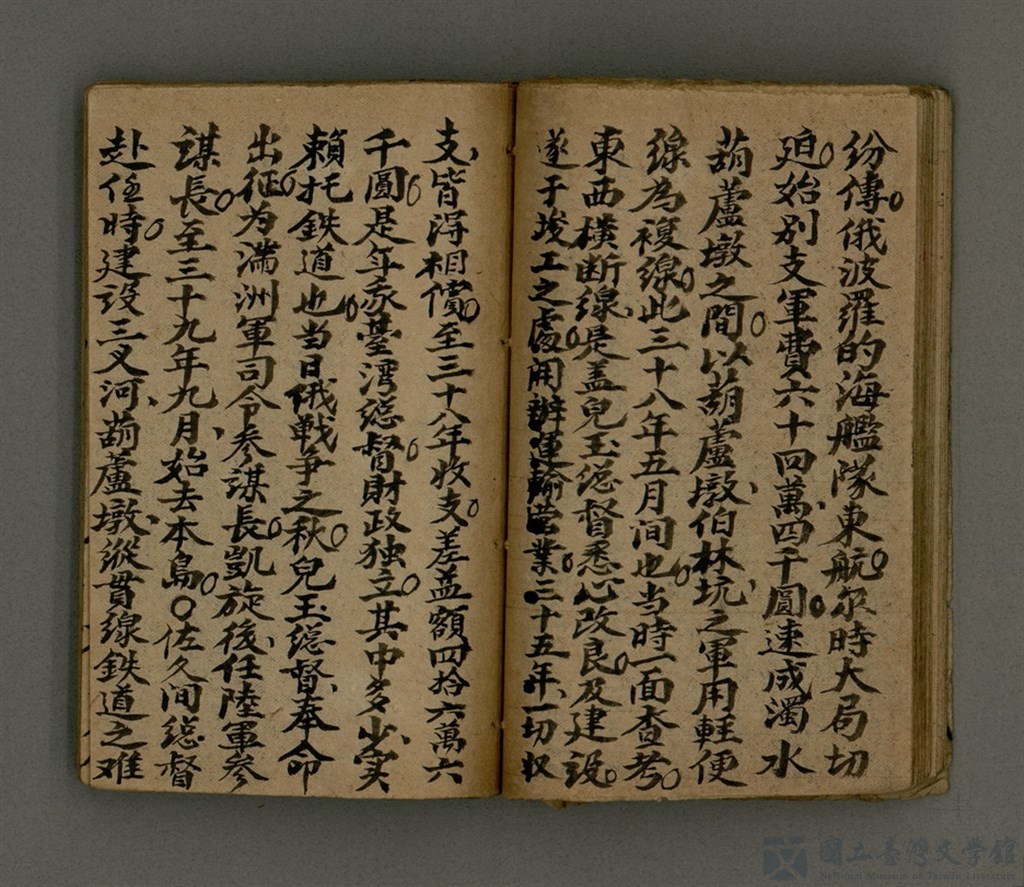 紛傳。俄波羅的海艦隊東航。尔時大局切
迫。始别支軍費六十四萬、四千圓。速成濁水
葫蘆墩之間。以葫蘆墩、伯林坑、之軍用軽便
線為複線。此三十八年五月间也。当時一面查考。
東西橫断線、是盖兒玉総督悉心改良。及建設。
遂于竣工之處。開辦運輸営業。三十五年、一切収
支、皆得相償。至三十八年收支。差益額四拾六萬六
千圓。是年家臺湾総督。財政独立。其中多少、实
賴托鉄道也。当日俄戦争之秋。兒玉総督、奉命
出征。为満洲軍司令参謀長。凱旋後、任陸軍参
謀長。至三十九年九月、始去本島。〇佐久间総督
赴任時。建设三叉河、葫蘆墩、縱貫線鉄道之难
國立臺灣文學館
National Museum of Taiwan Literature